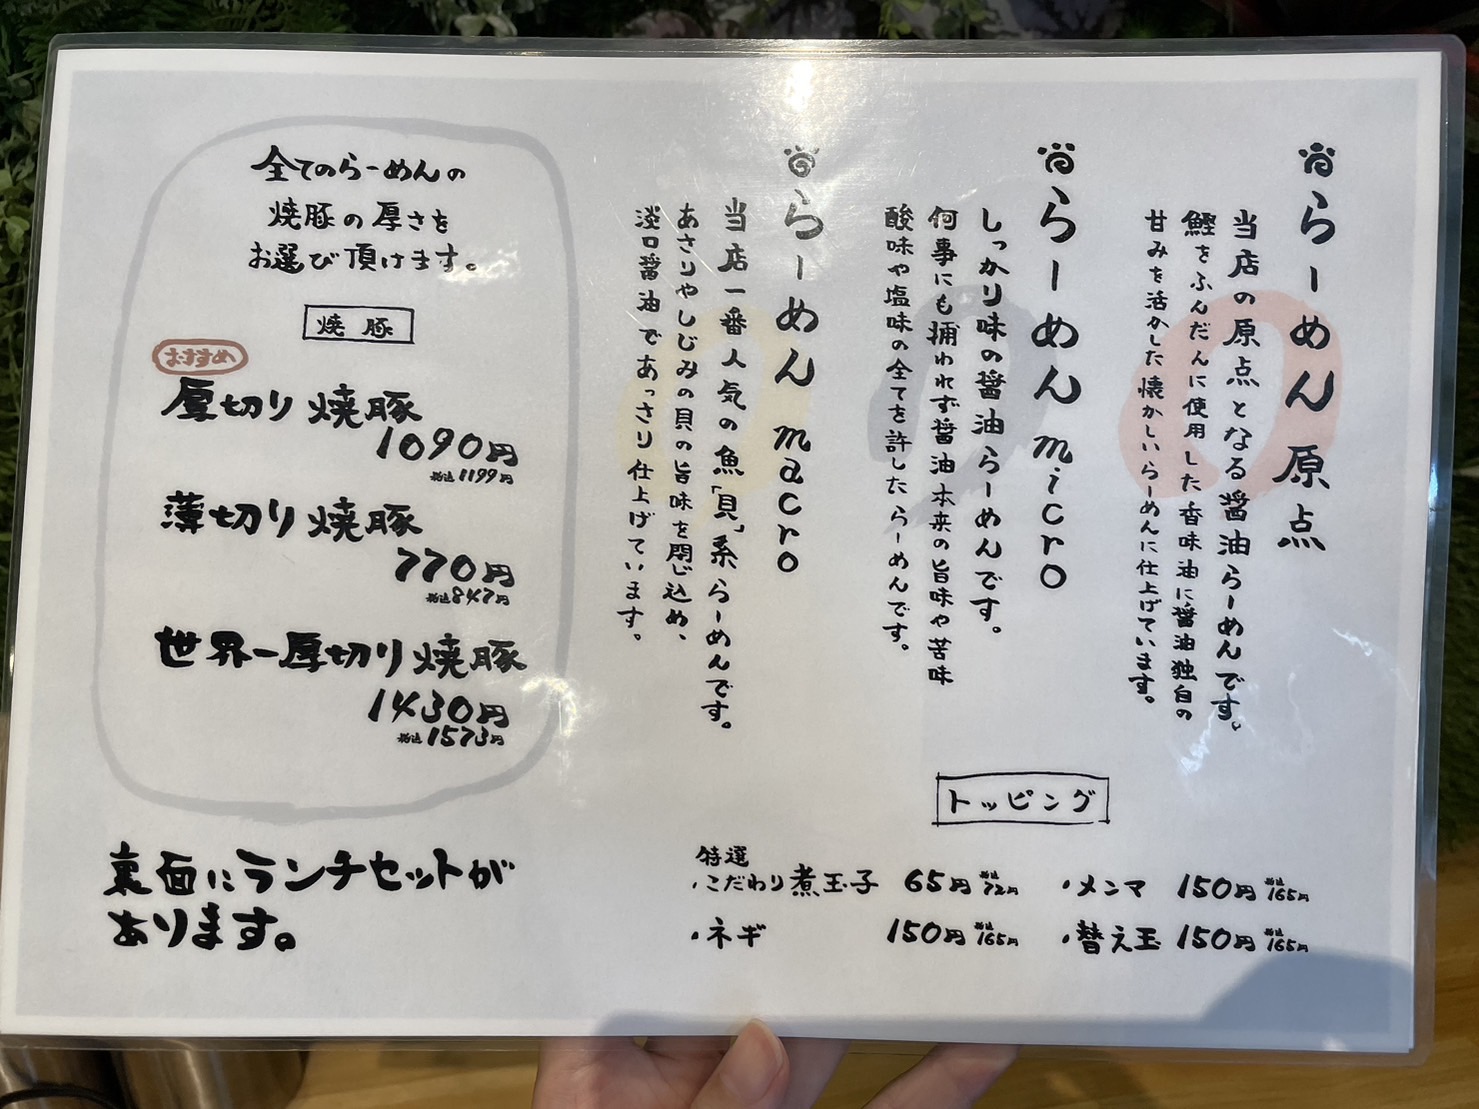 らーめん 原点
当店の原点となる醤油らーめんです。
鰹をふんだんに使用した香味油に醤油独自の
甘みを活かした懐かしいらーめんに仕上げています。
らーめん micro
しっかり味の醤油らーめんです。
何事にも捕われず醤油本来の旨味や苦味
酸味や塩味の全てを許したらーめんです。
らーめん macro
当店一番人気の魚「貝」系らーめんです。
あさりやしじみの貝の旨味を閉じ込め、
淡口醤油であっさり仕上げています。
トッピング
特選
・こだわり煮玉子 65円 税込72円
・メンマ 150円 税込165円
・ネギ 150円 税込165円
・替え玉 150円 税込165円
全てのらーめんの
焼豚の厚さを
お選び頂けます。
焼豚
おすすめ
厚切り焼豚
1090円
税込1199円
薄切り焼豚
770円
税込847円
世界一厚切り焼豚
1430円
税込1573円
裏面にランチセットが
あります。